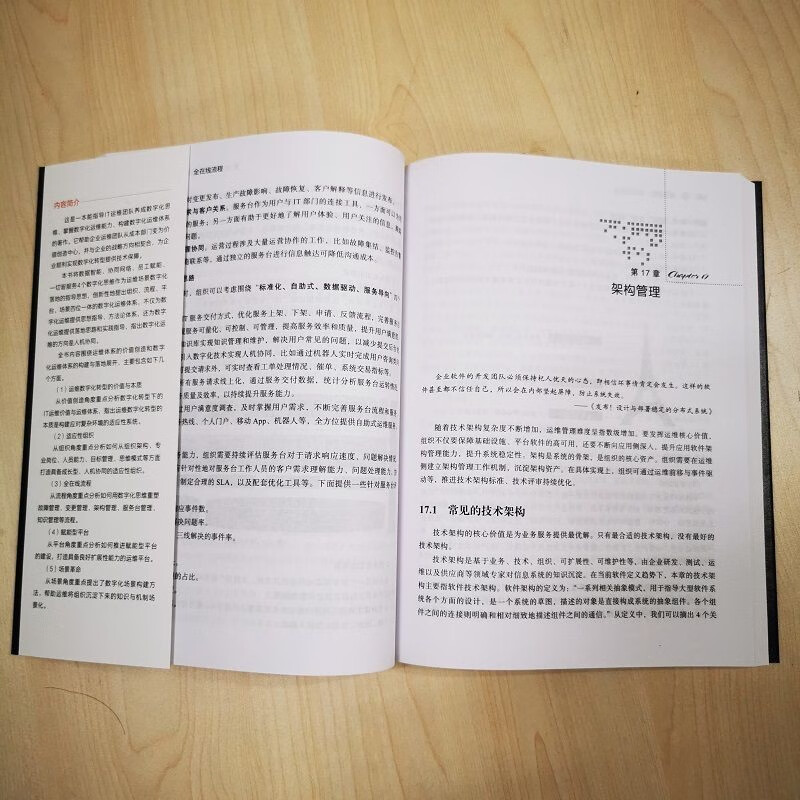 内容简介
这是一本能指导IT运维团队养成数字化思
维、掌握数字化运维能力、构建数字化运维体系
的著作。它帮助企业运维团队从成本部门变为价
值创造中心,并与企业的战略方向相契合,为企
业顺利实现数字化转型提供技术保障。
本书将数据智能、协同网络、员工赋能、
一切皆服务4个数字化思维作为运维场景数字化
落地的指导思想,创新性地提出组织、流程、平
台、场景四位一体的数字化运维体系,不仅为数
字化运维提供思想指导、方法论体系,还为数字
化运维提供落地思路和实践指导,指出数字化运
维的方向是人机协同。
全书内容围绕运维体系的价值创造和数字
化运维体系的构建与落地展开,主要包含如下几
个方面。
(1)运维数字化转型的价值与本质
从价值创造角度重点分析数字化转型下的
IT运维价值与运维体系,指出运维数字化转型的
本质是构建应对复杂环境的适应性系统。
(2)适应性组织
从组织角度重点分析如何从组织架构、专
业岗位、人员能力、目标管理、思维模式等方面
打造具备成长型、人机协同的适应性组织。
(3)全在线流程
从流程角度重点分析如何用数字化思维重塑
故障管理、变更管理、架构管理、服务台管理、
知识管理等流程。
(4)赋能型平台
从平台角度重点分析如何推进赋能型平台
的建设,打造具备良好扩展性能力的运维平台。
(5)场景革命
从场景角度重点提出了数字化场景构建方
法,帮助运维将组织沉淀下来的知识与机制场
景化。
全在线流程
对变更发布、生产故障影响、故障恢复、客户解释等信息进行发布。
索与客户关系。服务台作为用户与IT部门的连接工具,一方面可以为
的服务;另一方面有助于更好地了解用户体验、用户关注的信息,
问题。
署协同。运营过程涉及大量运营协作的工作,比如故障集结、监控告警
能联系等。通过独立的服务台进行信息触达可降低沟通成本。
思路
,组织可以考虑围绕“标准化、自助式、数据驱动、服务导向”
服务交付方式,优化服务上架、下架、申请、反馈流程,完善服务
服务可量化、可控制、可管理,提高服务效率和质量,提升用户满意度
知识库实现知识管理和维护,解决用户常见的问题,以减少提交后台
引入数字化技术实现人机协同,比如通过机器人实时完成用户咨询类
提交请求外,可实时查看工单处理情况、催单、系统交易指标等。
所有服务请求线上化,通过服务交付数据,统计分析服务台运转情况
质量及效率,以持续提升服务能力。
过用户满意度调查,及时掌握用户需求,不断完善服务台流程和服务
热线、个人门户、移动App、机器人等,全方位提供自助式运维服务
务能力,组织需要持续评估服务台对于请求响应速度、问题解决情况
要针对性地对服务台工作人员的客户需求理解能力、问题处理能力、
制定合理的SLA,以及配套优化工具等。下面提供一些针对服务台
应事件数。
决问题率。
三线解决的事件率。
的占比。
第17章 Chapter 17
架构管理
企业软件的开发团队必须保持杞人忧天的心态,即相信坏事情肯定会发生。这样的软
件甚至都不信任自己,所以会在内部竖起屏障,防止系统失效。
——《发布!设计与部署稳定的分布式系统》
随着技术架构复杂度不断增加,运维管理难度呈指数级增加。要发挥运维核心价值,
组织不仅要保障基础设施、平台软件的高可用,还要不断向应用侧深入,提升应用软件架
构管理能力,提升系统稳定性。架构是系统的骨架,是组织的核心资产。组织需要在运维
侧建立架构管理工作机制,沉淀架构资产。在具体实现上,组织可通过运维前移与事件驱
动等,推进技术架构标准、技术评审持续优化。
17.1 常见的技术架构
技术架构的核心价值是为业务服务提供最优解。只有最合适的技术架构,没有最好的
技术架构。
技术架构是基于业务、技术、组织、可扩展性、可维护性等,由企业研发、测试、运
维以及供应商等领域专家对信息系统的知识沉淀。在当前软件定义趋势下,本章的技术架
构主要指软件技术架构。软件架构的定义为:“一系列相关抽象模式,用于指导大型软件系
统各个方面的设计,是一个系统的草图,描述的对象是直接构成系统的抽象组件。各个组
件之间的连接则明确和相对细致地描述组件之间的通信。”从定义中,我们可以摘出4个关